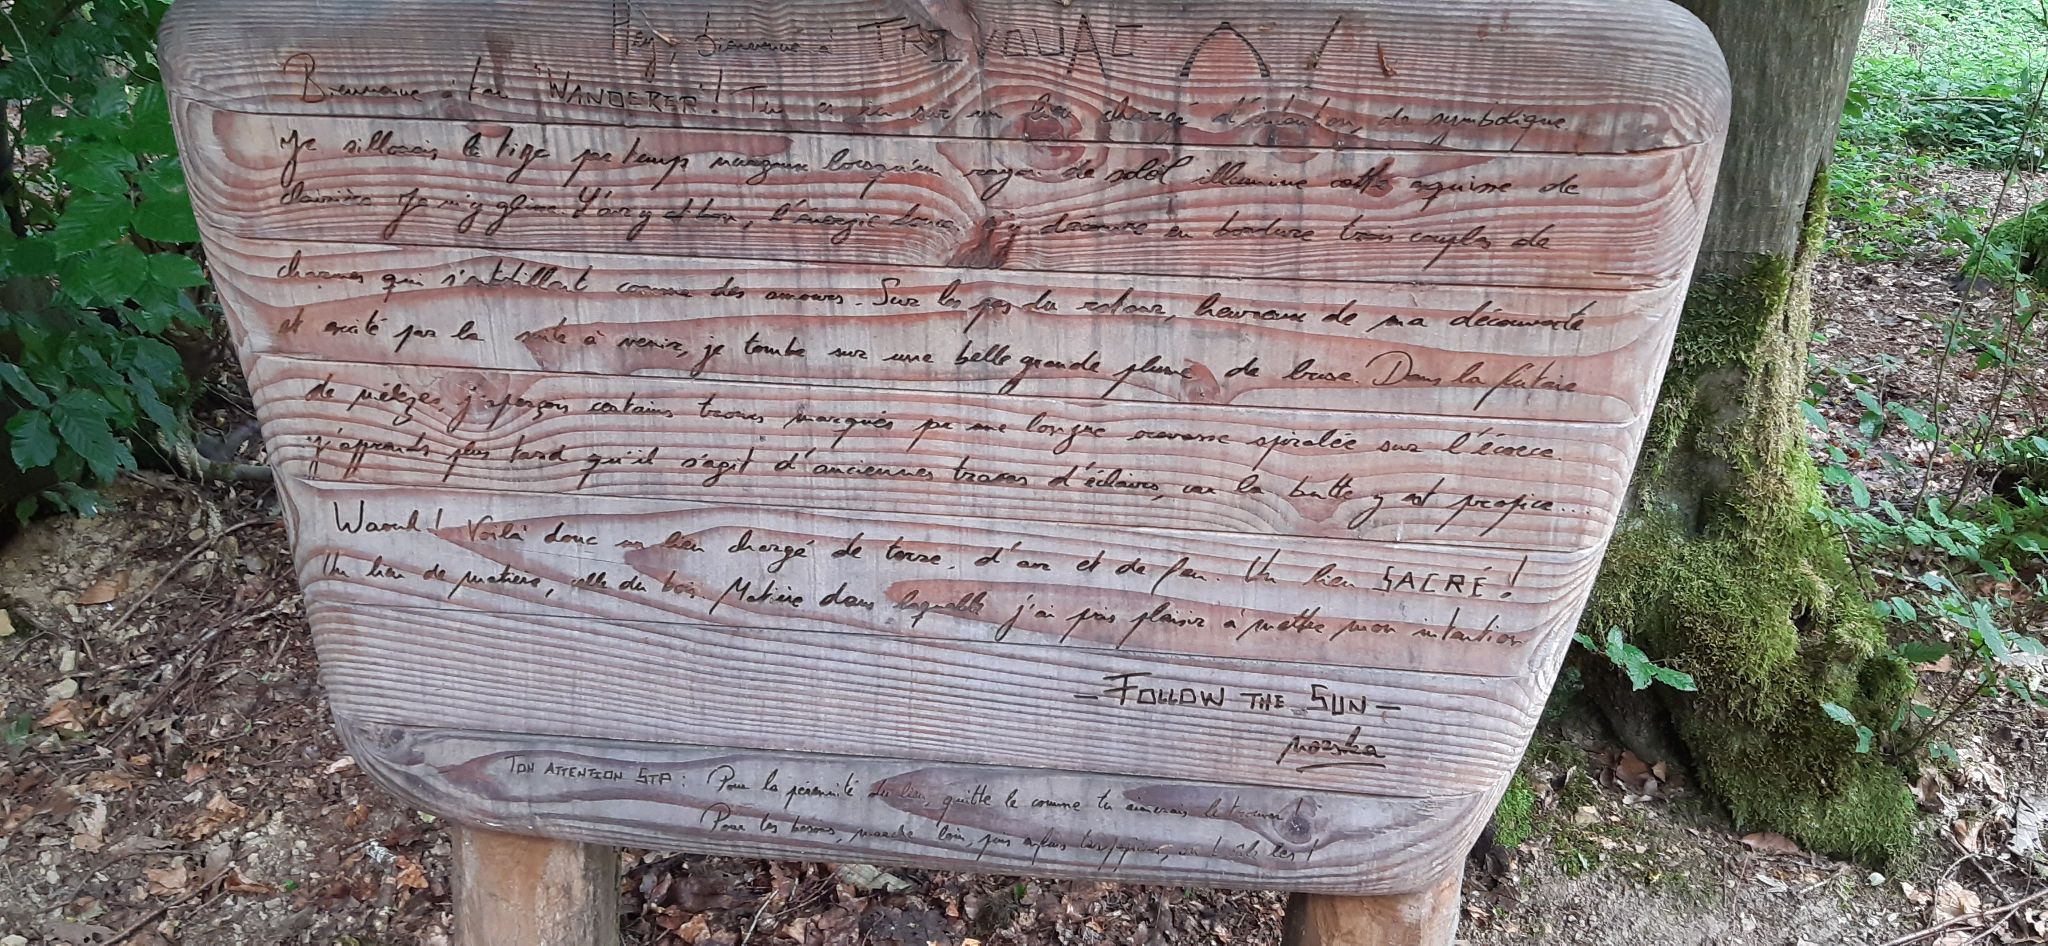 Hey, bienvenue à TRIVOUAC
Bienvenue à toi "WANDERER"! Tu es ici sur un lieu chargé d'intention, de symbolique.
Je sillonais le tige par temps nuageux lorsqu'un rayon de soleil illumine cette esquisse de
clairière. Je m'y glisse. L'air y est bon, l'énergie douce. J'y découvre en bordure trois couples de
charmes qui s'entortillent comme des amours. Sur les pas du retour, heureux de ma découverte
et excité par la suite à venir, je tombe sur une belle grande plume de buse. Dans la futaie
de mélèzes, j'aperçois certains troncs marqués par une longue crevasse spiralée sur l'écorce.
J'apprends plus tard qu'il s'agit d'anciennes traces d'éclairs, car la butte y est propice...
Waouh! Voilà donc un lieu chargé de terre, d'air et de feu. Un lieu SACRÉ!
Un lieu de matière, celle du bois. Matière dans laquelle j'ai pris plaisir à mettre mon intention
- FOLLOW THE SUN -
TON ATTENTION STP : Pour la pérennité du lieu, quitte le comme tu aimerais le trouver!
Pour tes besoins, marche loin, puis enfouis tes papiers, ou brûle les!